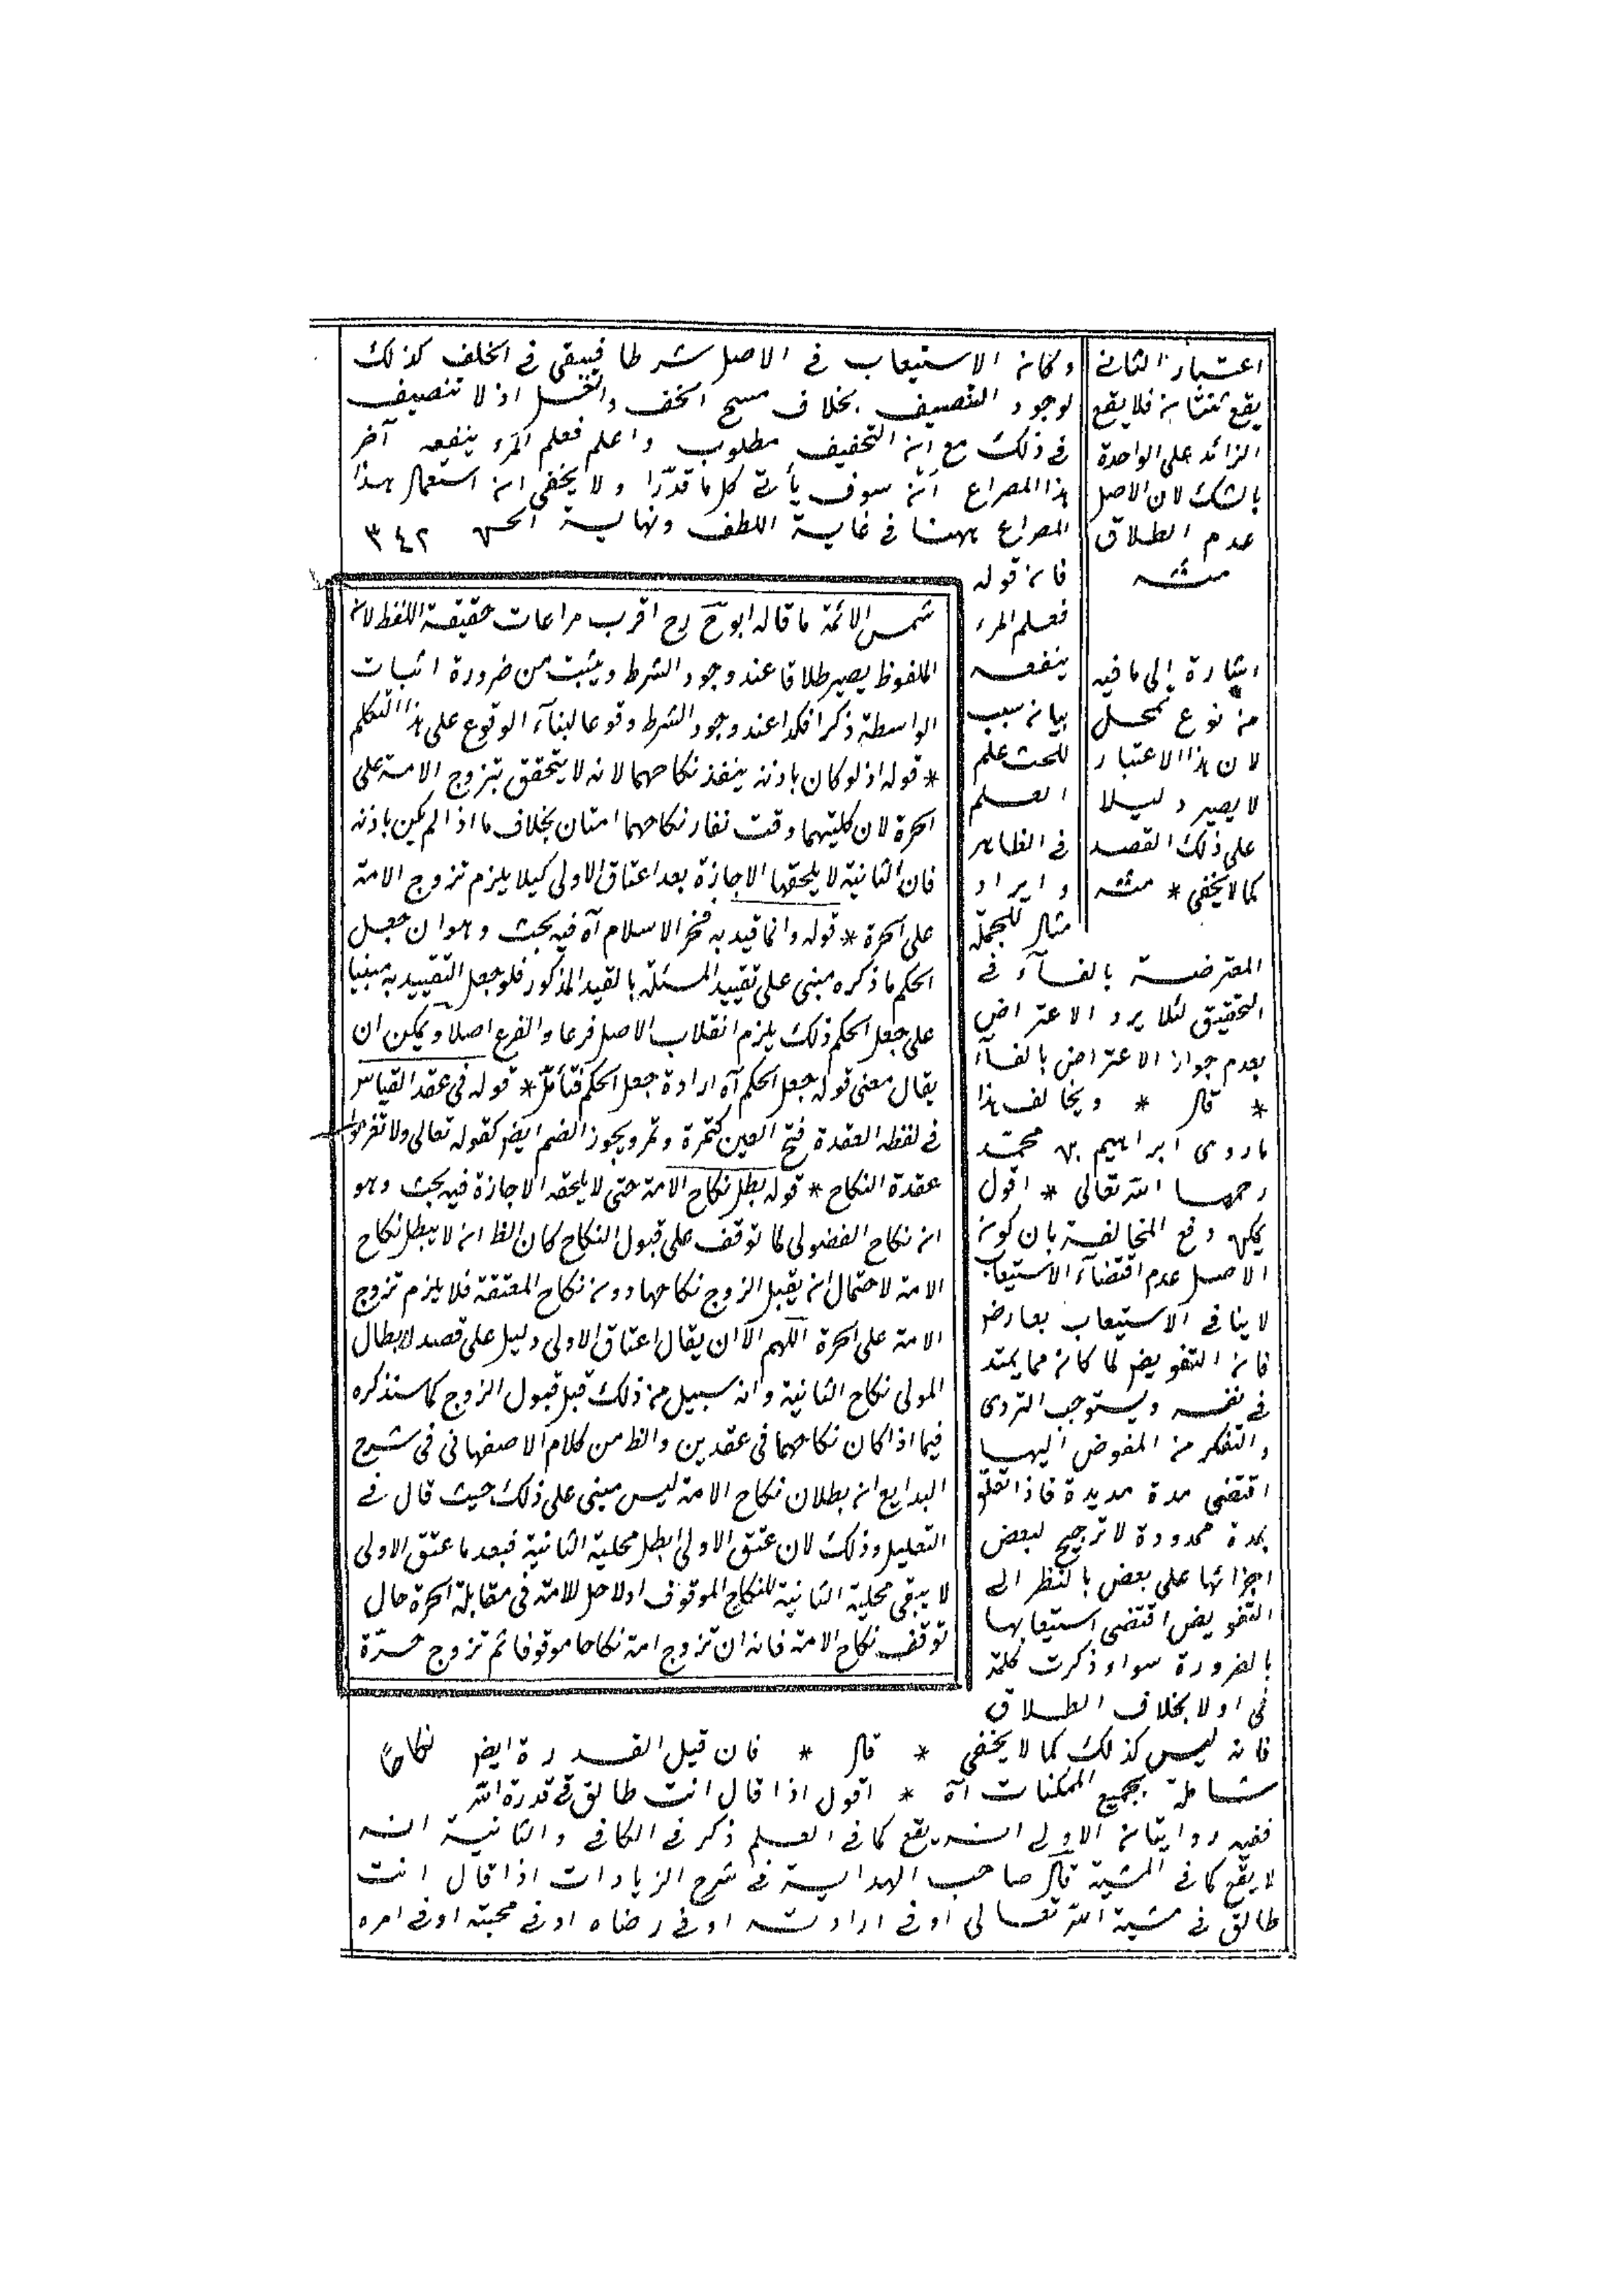 وكان الاستيعاب في الاصل شرطا فيبقى في الخلف كذلك
لوجود التنصيف بخلاف مسح الخف والغسل اذ لا تنصيف
في ذلك مع ان التخفيف مطلوب واعلم فعلم المرء ينفعه آخر
هذا المصراع ان سوف يأتي كل ما قدرا ولا يخفى ان استعمال هذا
المصراع ههنا في غاية اللطف ونهاية الحسن ٣٤٢
فان قوله
فعلم المرء
ينفعه
بيان سبب
للحث علم
العلم
في الظاهر
وايراد
مثال للجملة
المعترضة بالفاء في
التحقيق لئلا يرد الاعتراض
بعدم جواز الاعتراض بالفاء
* قال * ويخالف هذا
ما روى ابراهيم بن محمد
رحمهما الله تعالى * اقول
يمكن دفع المخالفة بان كون
الاصل عدم اقتضاء الاستيعاب
لا ينافي الاستيعاب بعارض
فان التفويض لما كان مما يمتد
في نفسه ويستوجب التروى
والتفكر من المفوض اليها
اقتضى مدة مديدة فاذا تعلق
بمدة محدودة لا ترجيح لبعض
اجزائها على بعض بالنظر الى
التفويض اقتضى استيعابها
بالضرورة سواء ذكرت كلمة
في او لا بخلاف الطلاق
فانه ليس كذلك كما لا يخفى * قال * فان قيل القدرة ايض
شاملة بجميع الممكنات آه * اقول اذا قال انت طالق في قدرة الله
ففيه روايتان الاولى انه يقع كما في العلم ذكر في الكافي والثانية انه
لا يقع كما في المشية قال صاحب الهداية في شرح الزيادات اذا قال انت
طالق في مشية الله تعالى او في ارادته او في رضاه او في محبته او في امره
اعتبار الثاني
يقع ثنتان فلا يقع
الزائد على الواحدة
بالشك لان الاصل
عدم الطلاق
منه
اشارة الى ما فيه
من نوع تمحل
لان هذا الاعتبار
لا يصير دليلا
على ذلك القصد
كما لا يخفى * منه
شمس الائمة ما قاله ابو ح رح اقرب مراعات حقيقة اللفظ لان
الملفوظ يصير طلاقا عند وجود الشرط ويثبت من ضرورة اثبات
الواسطة ذكرا فكذا عند وجود الشرط وقوعا لبناء الوقوع على هذا التكلم
* قوله اذ لو كان باذنه ينفذ نكاحهما لانه لا يتحقق تزوج الامة على
الحرة لان كليتهما وقت نفاذ نكاحهما امتان بخلاف ما اذا لم يكن باذنه
فان الثانية لا يلحقها الاجازة بعد اعتاق الاولى كيلا يلزم تزوج الامة
على الحرة * قوله وانما قيد به فخر الاسلام آه فيه بحث وهو ان جعل
الحكم ما ذكره مبنى على تقييد المسئلة بالقيد المذكور فلو جعل التقييد به مبنيا
على جعل الحكم ذلك يلزم انقلاب الاصل فرعا والفرع اصلا ويمكن ان
يقال معنى قوله جعل الحكم آه ارادة جعل الحكم فتأمل * قوله في عقد القياس
في لفظ العقدة فتح العين كتمرة وتمر ويجوز الضم ايض كقوله تعالى ولا تعزموا
عقدة النكاح * قوله بطل نكاح الامة حتى لا يلحقه الاجازة فيه بحث وهو
ان نكاح الفضولى لما توقف على قبول النكاح كان الظ ان لا يبطل نكاح
الامة لاحتمال ان يقبل الزوج نكاحها دون نكاح المعتقة فلا يلزم تزوج
الامة على الحرة اللهم الا ان يقال اعتاق الاولى دليل على قصد لابطال
المولى نكاح الثانية وانه سبيل من ذلك قبل قبول الزوج كما سنذكره
فيما اذا كان نكاحهما في عقدين والظ من كلام الاصفهانى في شرح
البدايع ان بطلان نكاح الامة ليس مبنى على ذلك حيث قال في
التعليل وذلك لان عتق الاولى ابطل محلية الثانية فبعد ما عتق الاولى
لا يبقى محلية الثانية للنكاح الموقوف اولا حل للامة في مقابلة الحرة حال
توقف نكاح الامة فانه ان تزوج امة نكاحا موقوفا ثم تزوج حرة
نكاحا